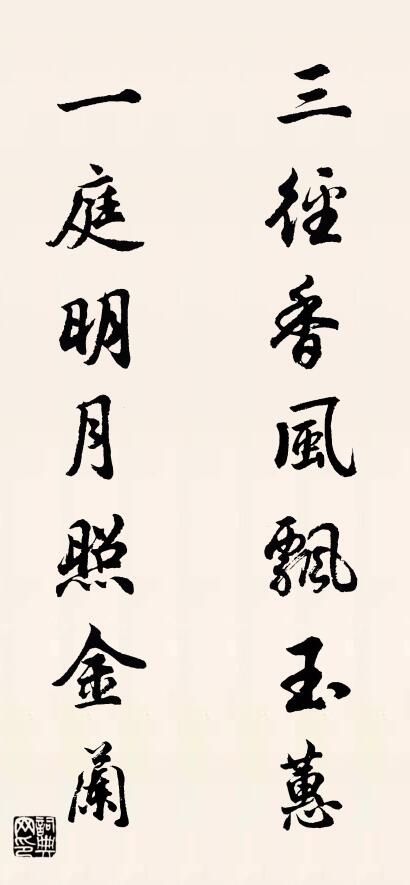 三徑香風飄玉蕙
一庭明月照金蘭
詞典
网印